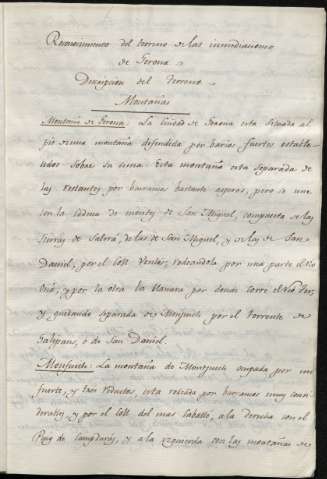 Reconocimiento del terreno de las inmediaciones
de Gerona
Descripcion del Terreno
Montañas
Montaña de Gerona: La Ciudad de Gerona esta Situada al
pie de una montaña difendida por barios fuertes estable
cidos sobre su cima. Esta montaña esta separada de
las restantes por barrancos bastante asperos, pero se une
con la cadena de montes de San Miguel, compuesta de las
Sierras de de las de San Miguel, y de las de San
Daniel, por el Coll rodeandola por una parte el Rio
Oñá, y por la otra la llanura por donde corre el Rio Ter,
y quedando separada de Monjuich por el Torrente de
Galligans, ó de San Daniel.
Monjuich: La montaña de Montjuich ocupada por un
fuerte, y tres reductos, esta rodeada por barrancos muy consi
derables, y por el Coll del mas Caballé, a la derecha con el
Puig de y a la izquierda con las montañas de